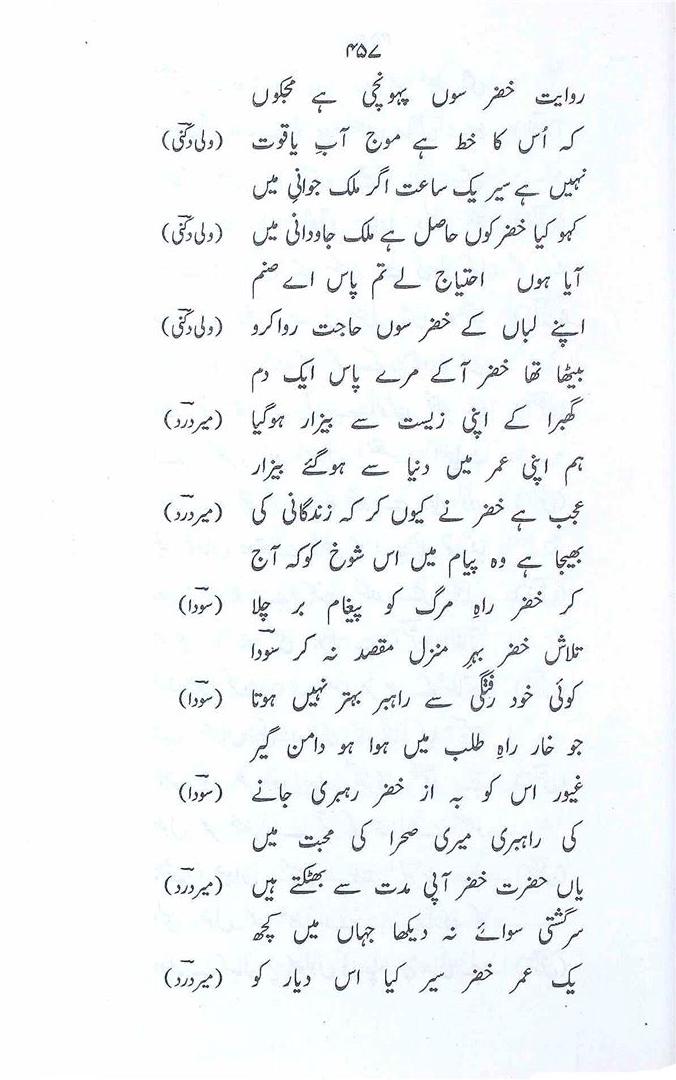 ۴۵۷
روایت خضر سوں پہونچی ہے مجکوں
کہ اُس کا خط ہے موج آبِ یاقوت (ولی دکنی)
نہیں ہے سیر یک ساعت اگر ملک جوانی میں
کہو کیا خضر کوں حاصل ہے ملک جاودانی میں (ولی دکنی)
آیا ہوں احتیاج لے تم پاس اے صنم
اپنے لباں کے خضر سوں حاجت روا کرو (ولی دکنی)
بیٹھا تھا خضر آکے مرے پاس ایک دم
گھبرا کے اپنی زیست سے بیزار ہوگیا (میر درد)
ہم اپنی عمر میں دنیا سے ہوگئے بیزار
عجب ہے خضر نے کیوں کر کہ زندگانی کی (میر درد)
بھیجا ہے وہ پیام میں اس شوخ کو کہ آج
کر خضر راہِ مرگ کو پیغام بر چلا (سودا)
تلاش خضر بہرِ منزل مقصد نہ کر سودا
کوئی خود رفتگی سے راہبر بہتر نہیں ہوتا (سودا)
جو خار راہِ طلب میں ہوا ہو دامن گیر
غیور اس کو بہ از خضر رہبری جانے (سودا)
کی راہبری میری صحرا کی محبت میں
یاں حضرت خضر آپی مدت سے بھٹکتے ہیں (میر درد)
سرگشتی سوائے نہ دیکھا جہاں میں کچھ
یک عمر خضر سیر کیا اس دیار کو (میر درد)